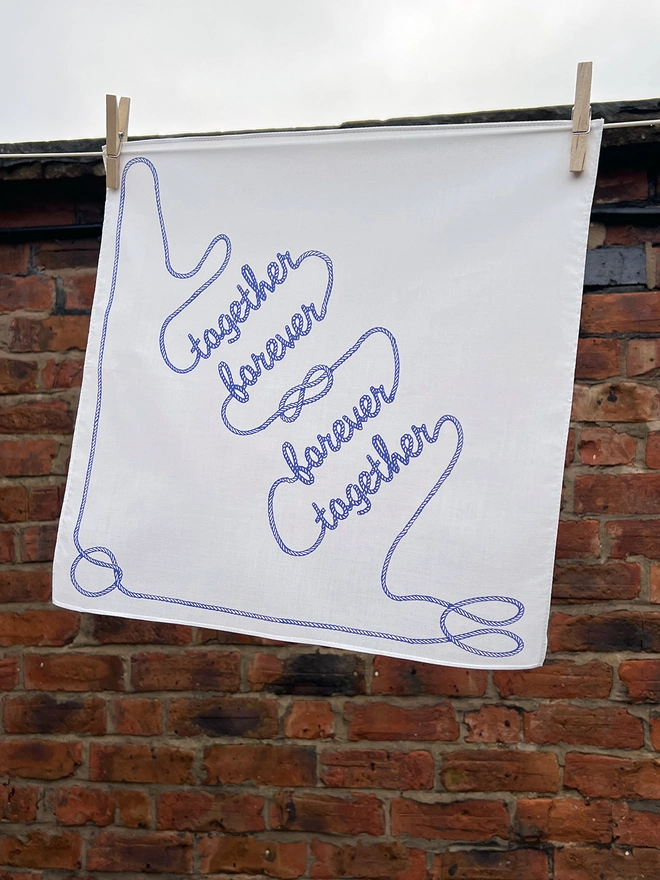 together
forever
forever
together